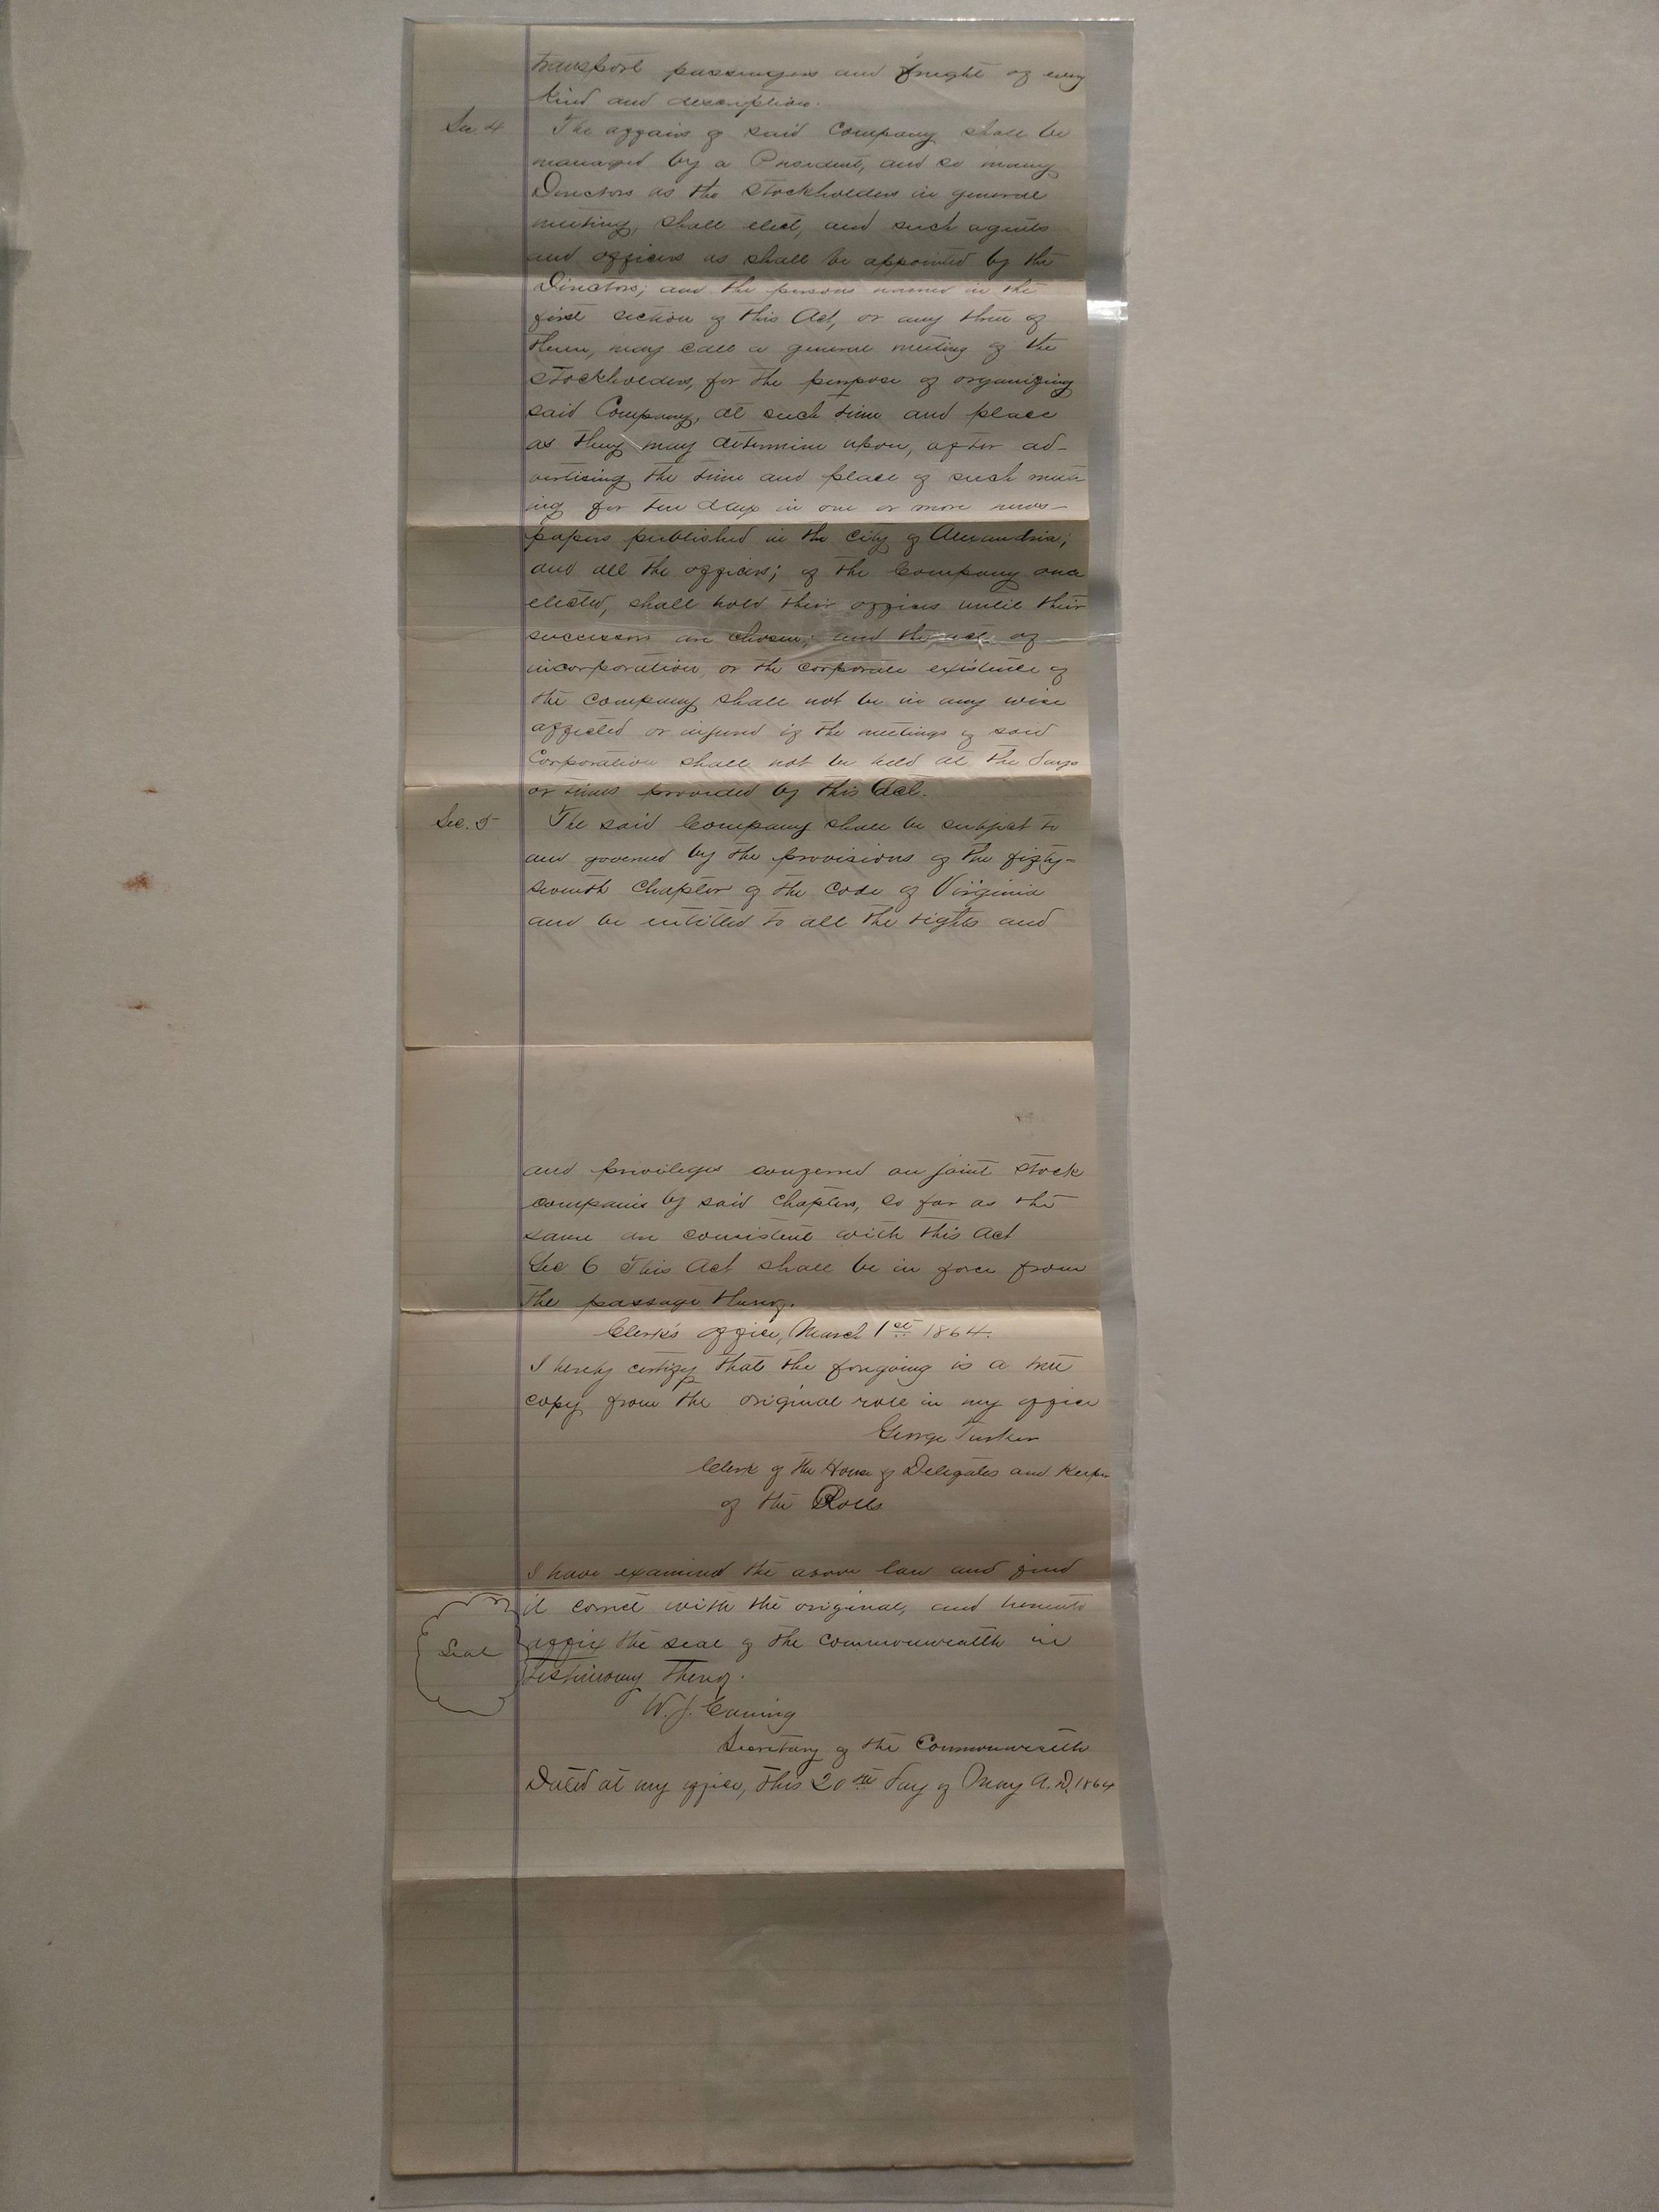 transport passengers and freight of every
kind and description.
Sec. 4 The affairs of said Company shall be
managed by a President, and so many
Directors as the Stockholders in general
meeting, shall elect, and such agents
and officers as shall be appointed by the
Directors; and the persons named in the
first section of this Act, or any three of
them, may call a general meeting of the
Stockholders, for the purpose of organizing
said Company, at such time and place
as they may determine upon, after ad-
vertising the time and place of such meet
ing for ten days in one or more news-
papers published in the City of Alexandria;
and all the officers; of the Company once
elected, shall hold their offices until their
successors are chosen; and the act of
incorporation, or the corporate existence of
the company shall not be in any wise
affected or injured if the meetings of said
Corporation shall not be held at the days
or times provided by this Act.
Sec. 5 The said Company shall be subject to
and governed by the provisions of the fifty-
seventh Chapter of the Code of Virginia
and be entitled to all the rights and
and privileges conferred on joint stock
companies by said Chapter, so far as the
same are consistent with this Act
Sec 6 This Act shall be in force from
the passage thereof.
Clerk's office, March 1st 1864.
I hereby certify that the foregoing is a true
copy from the original role in my office
George Tucker
Clerk of the House of Delegates and Keeper
of the Rolls
I have examined the above law and find
it correct with the original, and hereunto
Seal affix the seal of the Commonwealth in
testimony thereof.
W. J. Cowing
Secretary of the Commonwealth
Dated at my office, this 20th day of May A.D. 1864